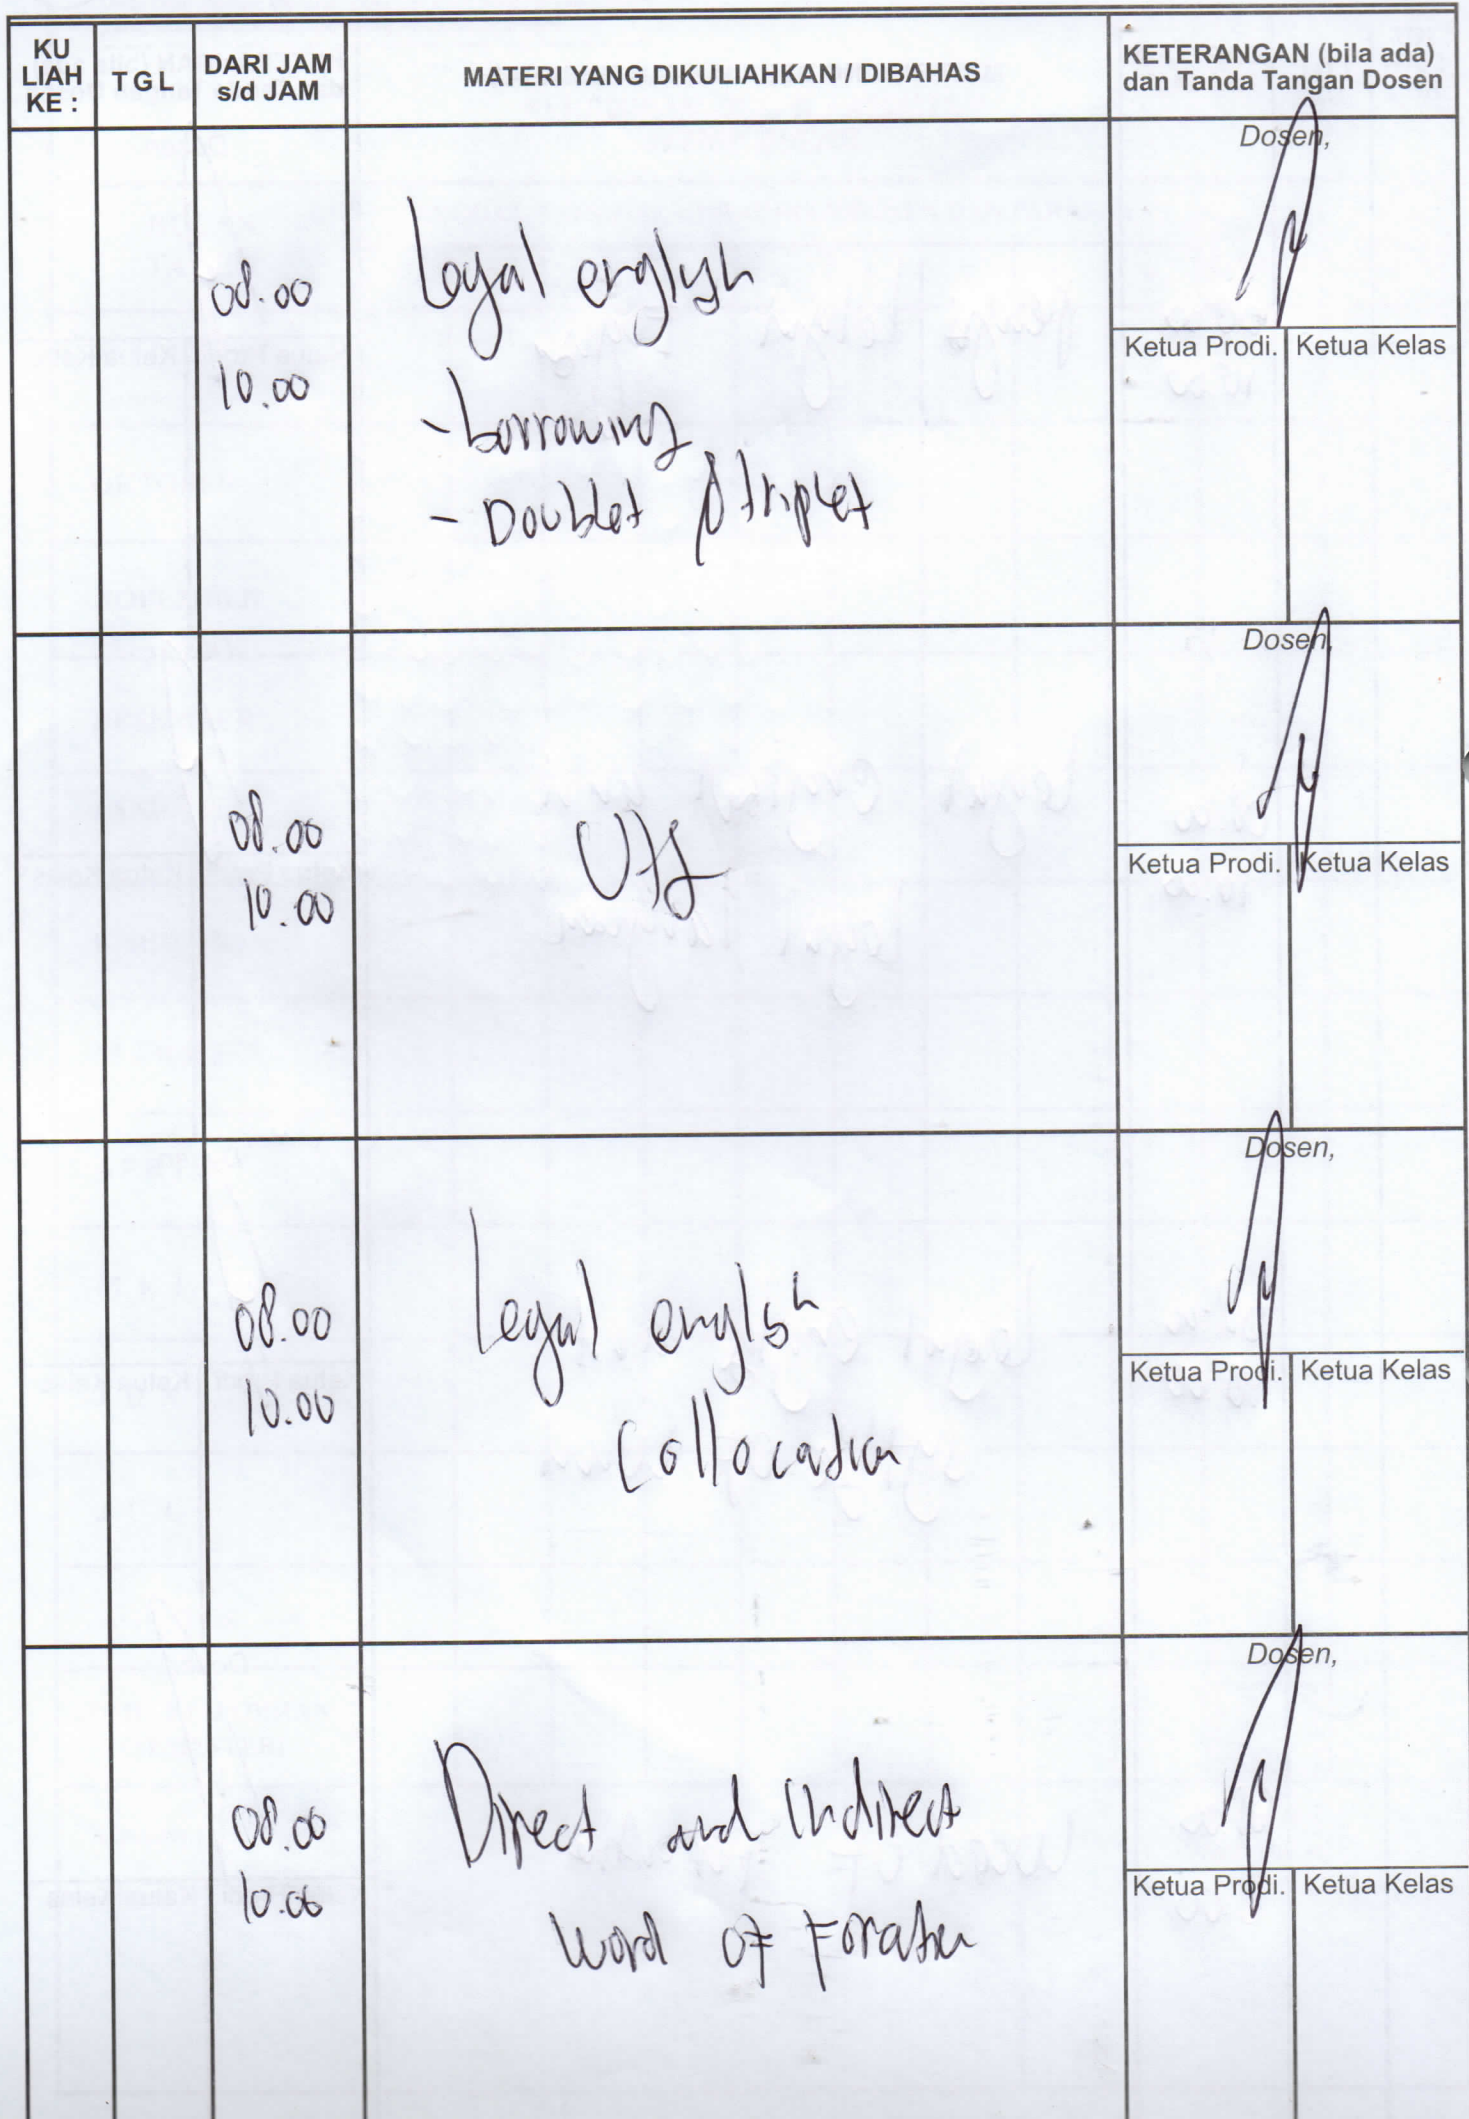 KU LIAH KE :
TGL
DARI JAM s/d JAM
MATERI YANG DIKULIAHKAN / DIBAHAS
KETERANGAN (bila ada) dan Tanda Tangan Dosen
Dosen,
08.00
10.00
Legal english
- borrowing
- Doublet & triplet
Ketua Prodi.
Ketua Kelas
Dosen,
08.00
10.00
UTS
Ketua Prodi.
Ketua Kelas
Dosen,
08.00
10.00
Legal english
Collocation
Ketua Prodi.
Ketua Kelas
Dosen,
08.00
10.00
Direct and Indirect
Word of
Ketua Prodi.
Ketua Kelas